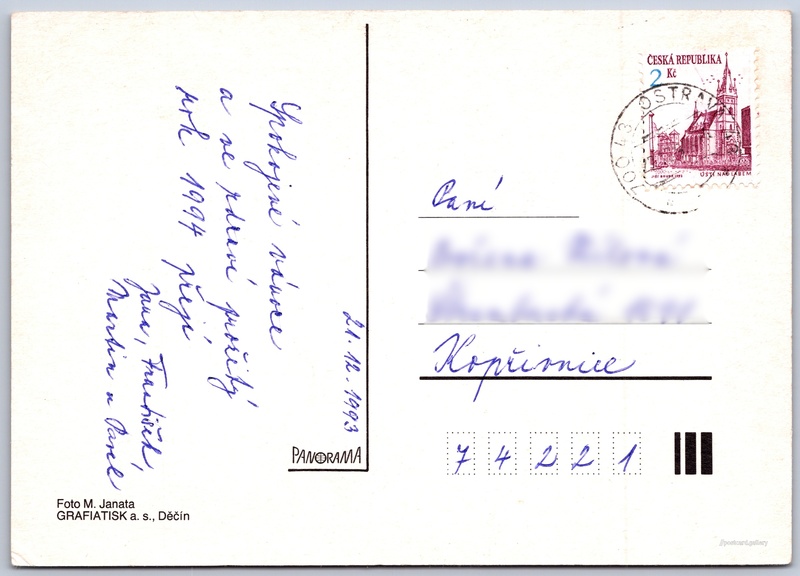 Spokojené vánoce
a ve zdraví prožitý
rok 1994 přejí
Jana, František,
Martin a Pavel
21.12.1993
PANORAMA
Foto M. Janata
GRAFIATISK a. s., Děčín
ČESKÁ REPUBLIKA
2 Kč
ÚSTÍ NAD LABEM
OSTRAVA
Paní
Kopřivnice
74221